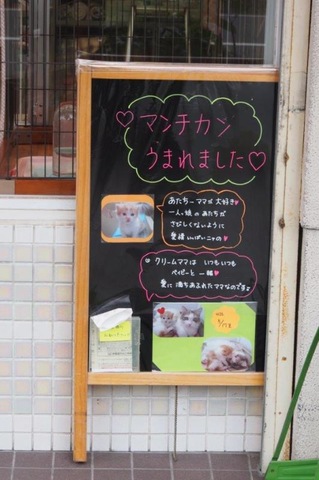 ♡マンチカン
うまれました♡
あたち-ママが大好き♥
一人娘のあたちが
さびしくないように
愛情いっぱいニャの♥
クリームママは いつもいつも
ベビーと一緒♥
愛に満ちあふれたママなのです